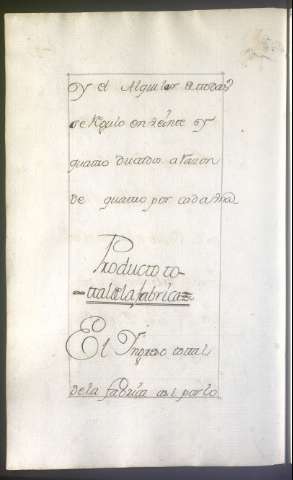 y el Alquiler
se Regulo en Veinte y
quatro Ducados a razon
de quatro por cada
Producto to-
tal de la fabrica
El Ingreso total
de la fabrica asi por lo